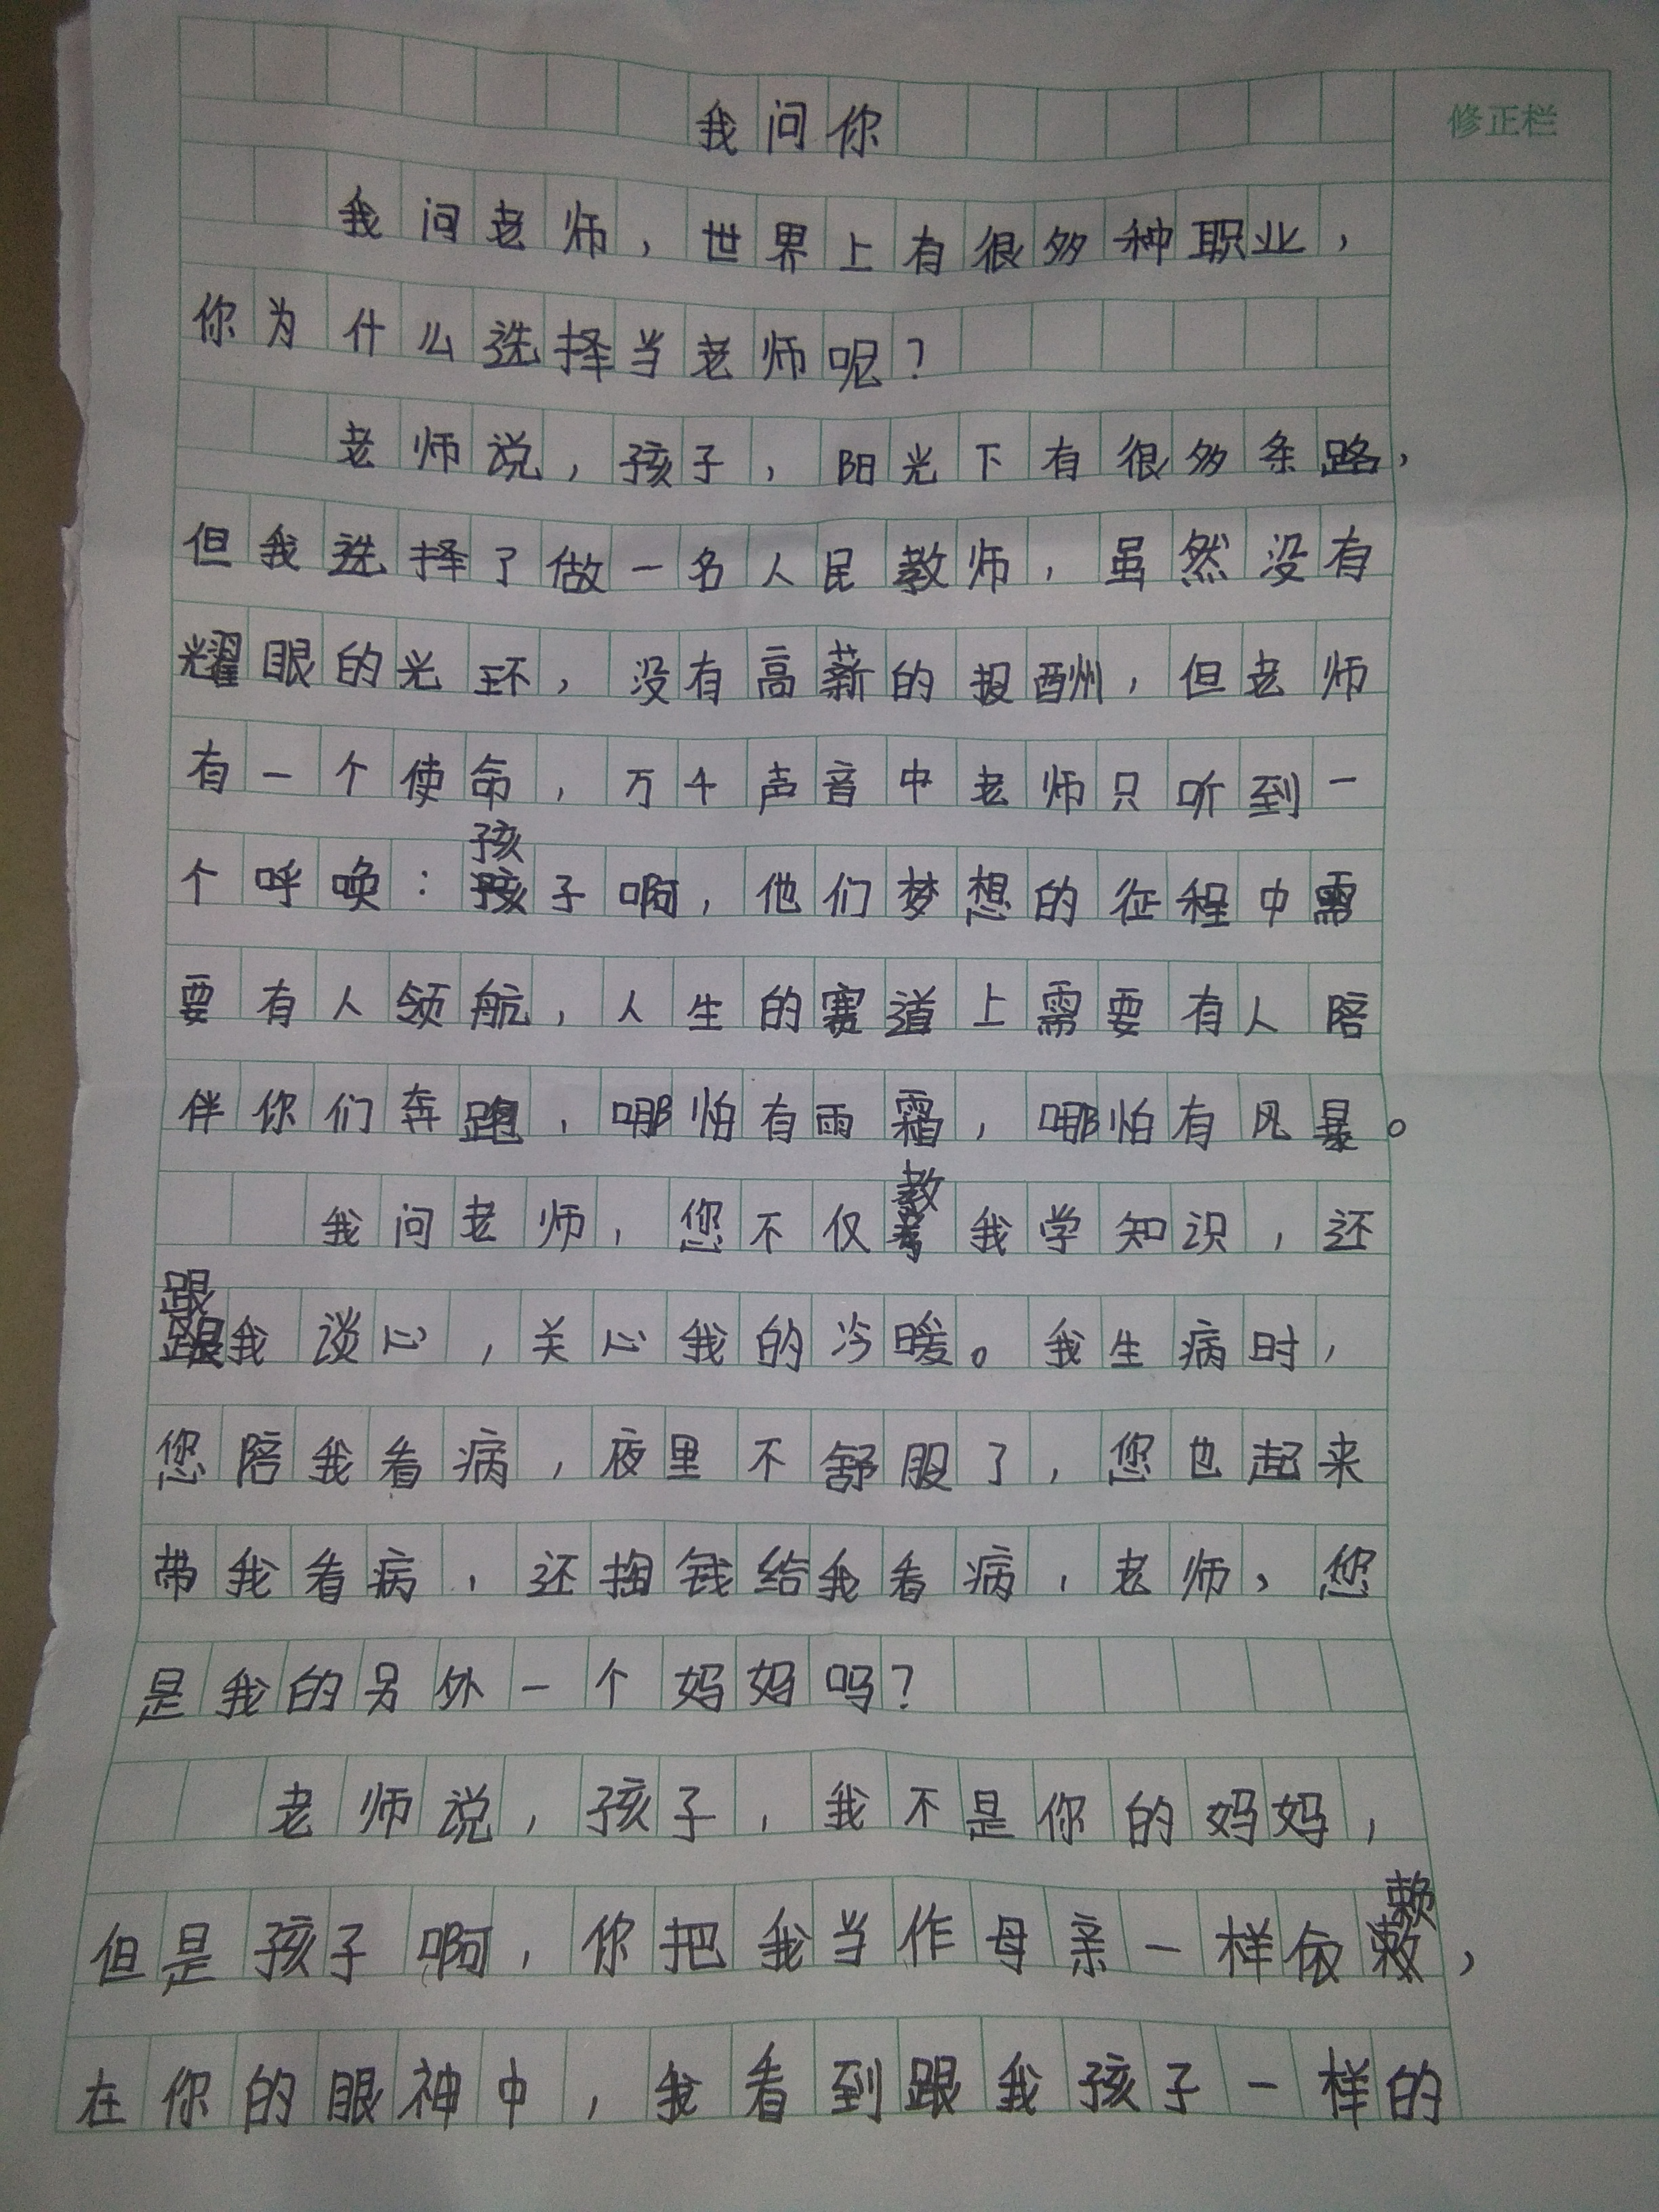 我问你
修正栏
我问老师，世界上有很多种职业，
你为什么选择当老师呢？
老师说，孩子，阳光下有很多条路，
但我选择了做一名人民教师，虽然没有
耀眼的光环，没有高薪的报酬，但老师
有一个使命，万千声音中老师只听到一
个呼唤：孩子啊，他们梦想的征程中需
要有人领航，人生的赛道上需要有人陪
伴你们奔跑，哪怕有雨霜，哪怕有风暴。
我问老师，您不仅教我学知识，还
跟我谈心，关心我的冷暖。我生病时，
您陪我看病，夜里不舒服了，您也起来
带我看病，还掏钱给我看病，老师，您
是我的另外一个妈妈吗？
老师说，孩子，我不是你的妈妈，
但是孩子啊，你把我当作母亲一样依赖，
在你的眼神中，我看到跟我孩子一样的